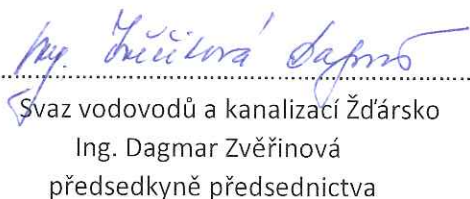 Ing. Zvěřinová Dagmar
Svaz vodovodů a kanalizací Žďársko
Ing. Dagmar Zvěřinová
předsedkyně předsednictva